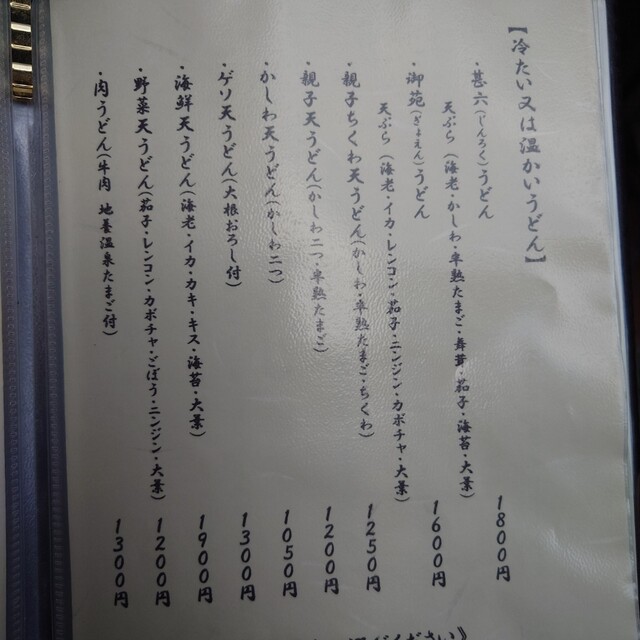 【冷たい又は温かいうどん】
・甚六(じんろく)うどん 1800円
天ぷら(海老・かしわ・半熟たまご・舞茸・茄子・海苔・大葉)
・御苑(ぎょえん)うどん 1600円
天ぷら(海老・イカ・レンコン・茄子・ニンジン・カボチャ・大葉)
・親子ちくわ天うどん(かしわ・半熟たまご・ちくわ) 1250円
・親子天うどん(かしわ二つ・半熟たまご) 1200円
・かしわ天うどん(かしわ二つ) 1050円
・ゲソ天うどん(大根おろし付) 1300円
・海鮮天うどん(海老・イカ・カキ・キス・海苔・大葉) 1900円
・野菜天うどん(茄子・レンコン・カボチャ・ごぼう・ニンジン・大葉) 1200円
・肉うどん(牛肉 地養温泉たまご付) 1300円
ください》